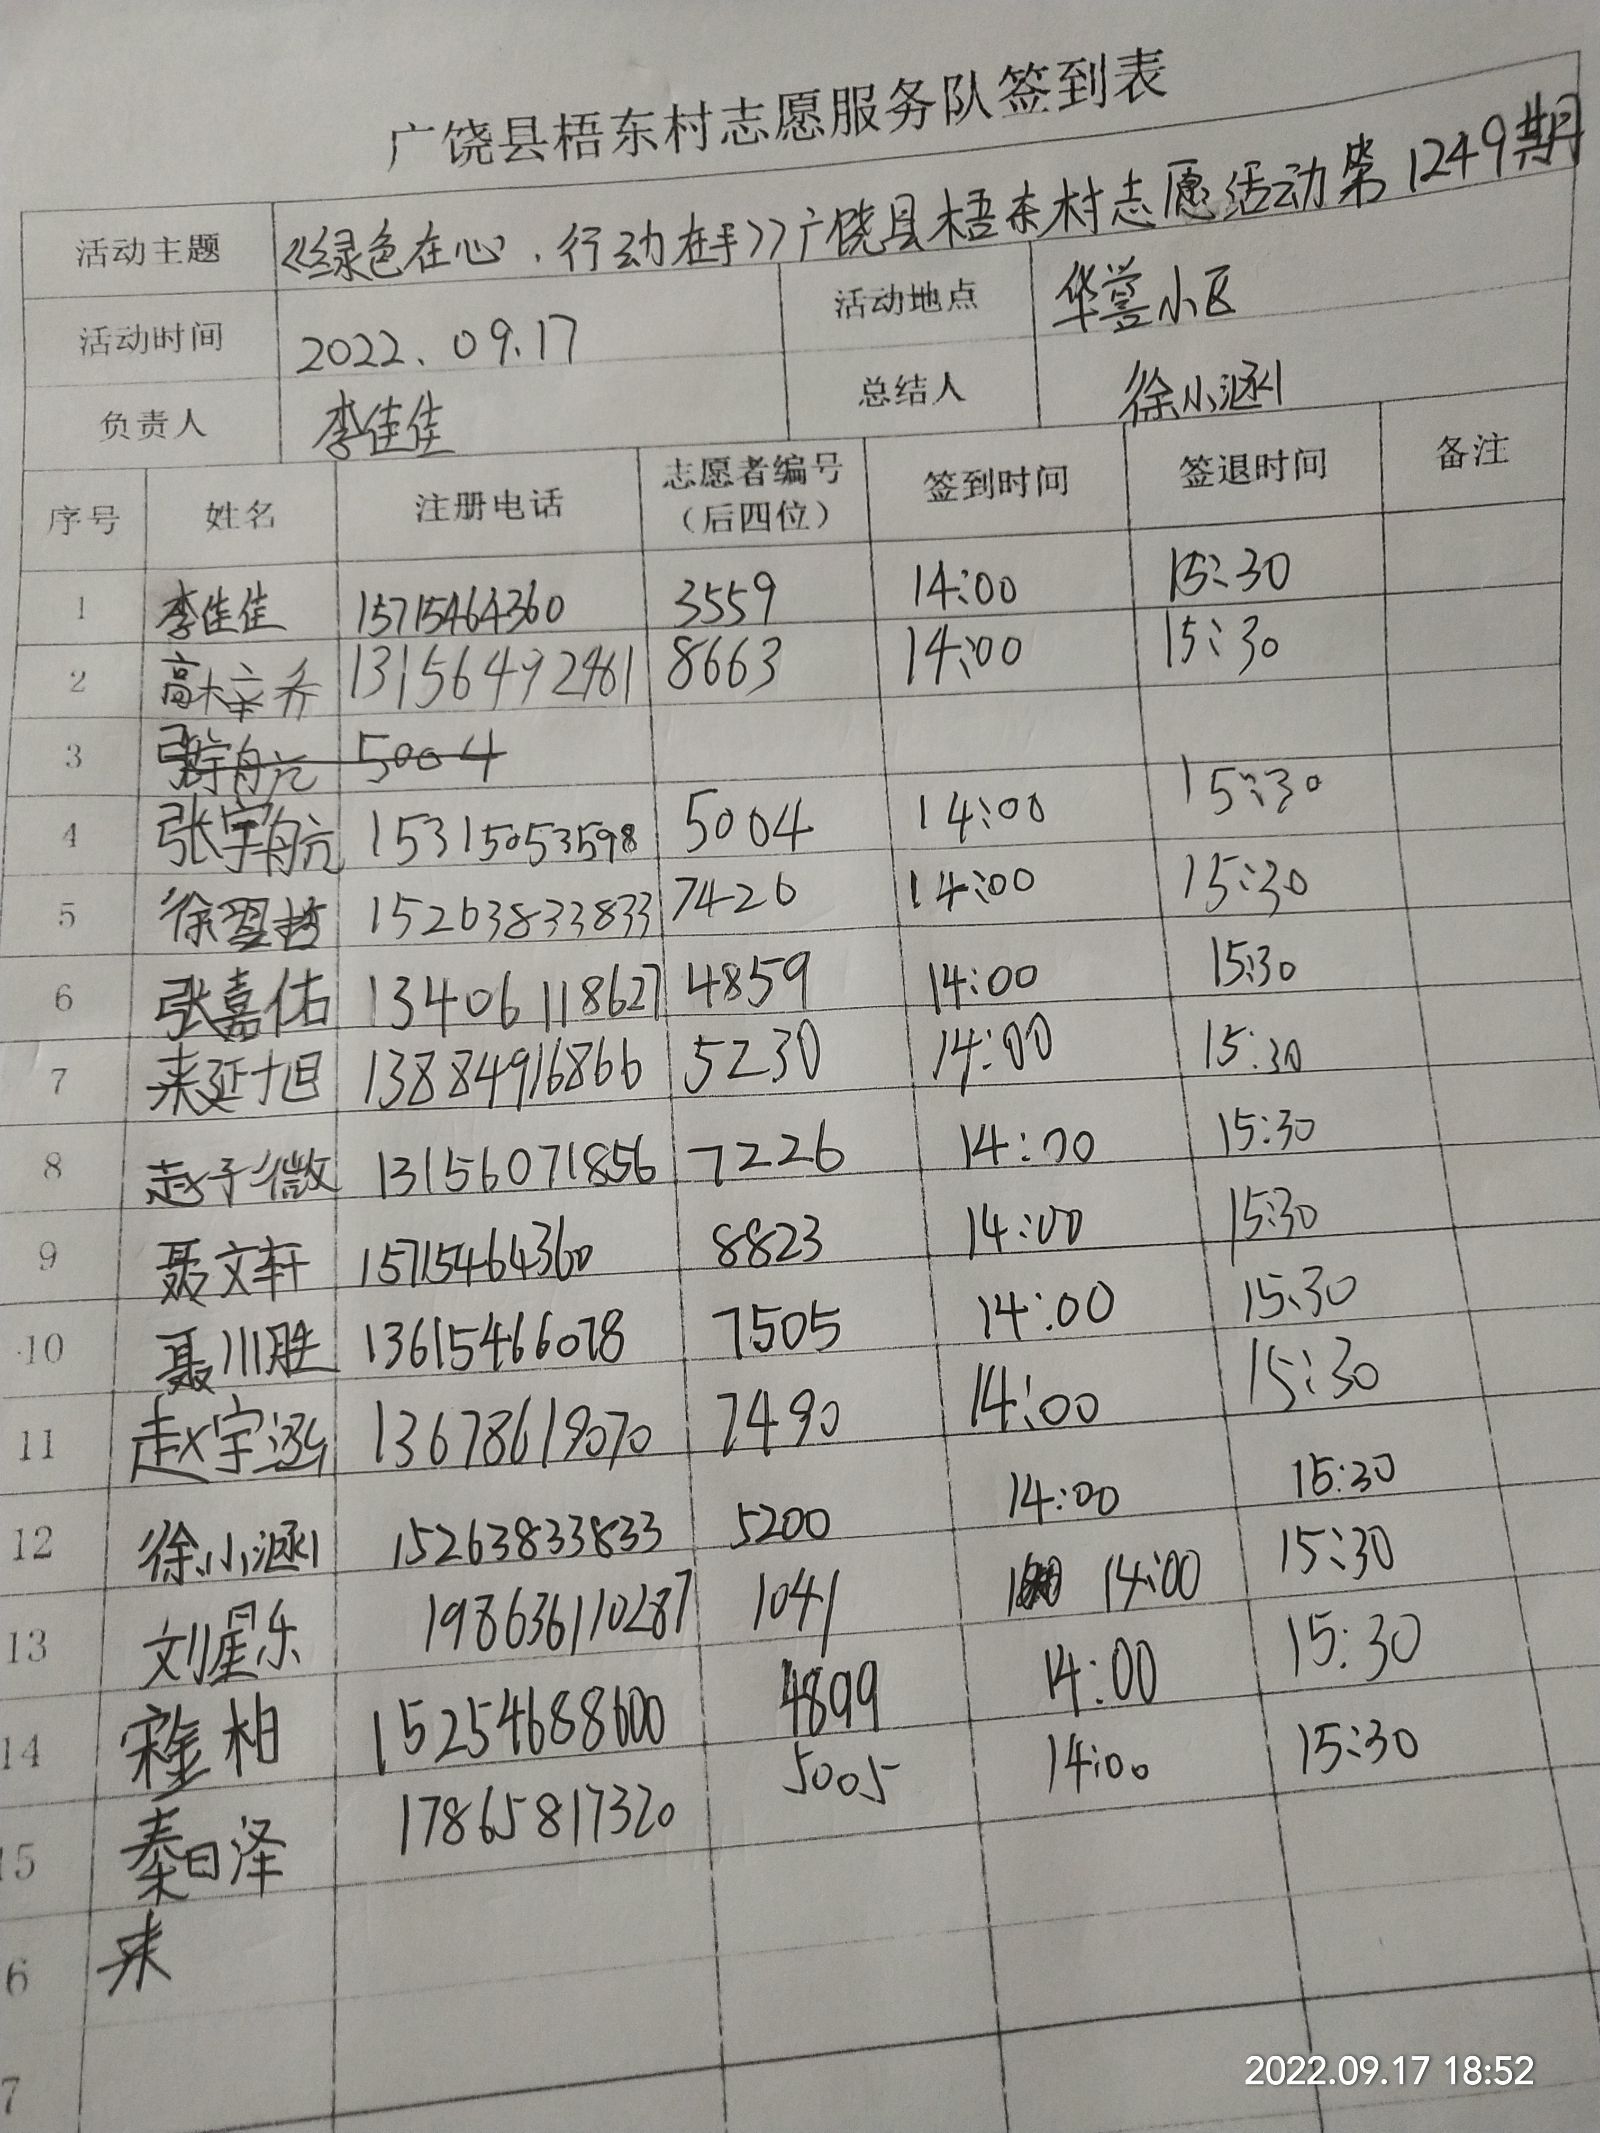 广饶县梧东村志愿服务队签到表
活动主题 《绿色在心，行动在手》广饶县梧东村志愿活动第1249期
活动时间 2022.09.17 活动地点 华誉小区
负责人 李佳佳 总结人 徐小涵
序号 姓名 注册电话 志愿者编号（后四位） 签到时间 签退时间 备注
1 李佳佳 15715464360 3559 14:00 15:30
2 高梓乔 13156492481 8663 14:00 15:30
3 张宇航 5004
4 张宇航 15315053598 5004 14:00 15:30
5 徐翌哲 15263833833 7426 14:00 15:30
6 张嘉佑 13406118627 4859 14:00 15:30
7 来延旭 13884916866 5230 14:00 15:30
8 赵子微 13156071856 7226 14:00 15:30
9 聂文轩 15715464360 8823 14:00 15:30
10 聂川胜 13615466078 7505 14:00 15:30
11 赵宇涵 13678619070 7490 14:00 15:30
12 徐小涵 15263833833 5200 14:00 15:30
13 刘星乐 198636110287 1041 14:00 15:30
14 宋金柏 15254688600 4899 14:00 15:30
15 秦日泽 17865817320 5005 14:00 15:30
6 来
7
2022.09.17 18:52